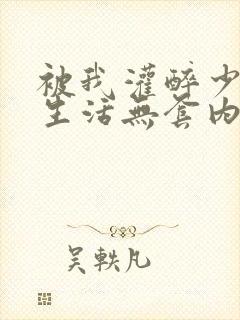 被我灌醉少
生活無套内
吴軼凡